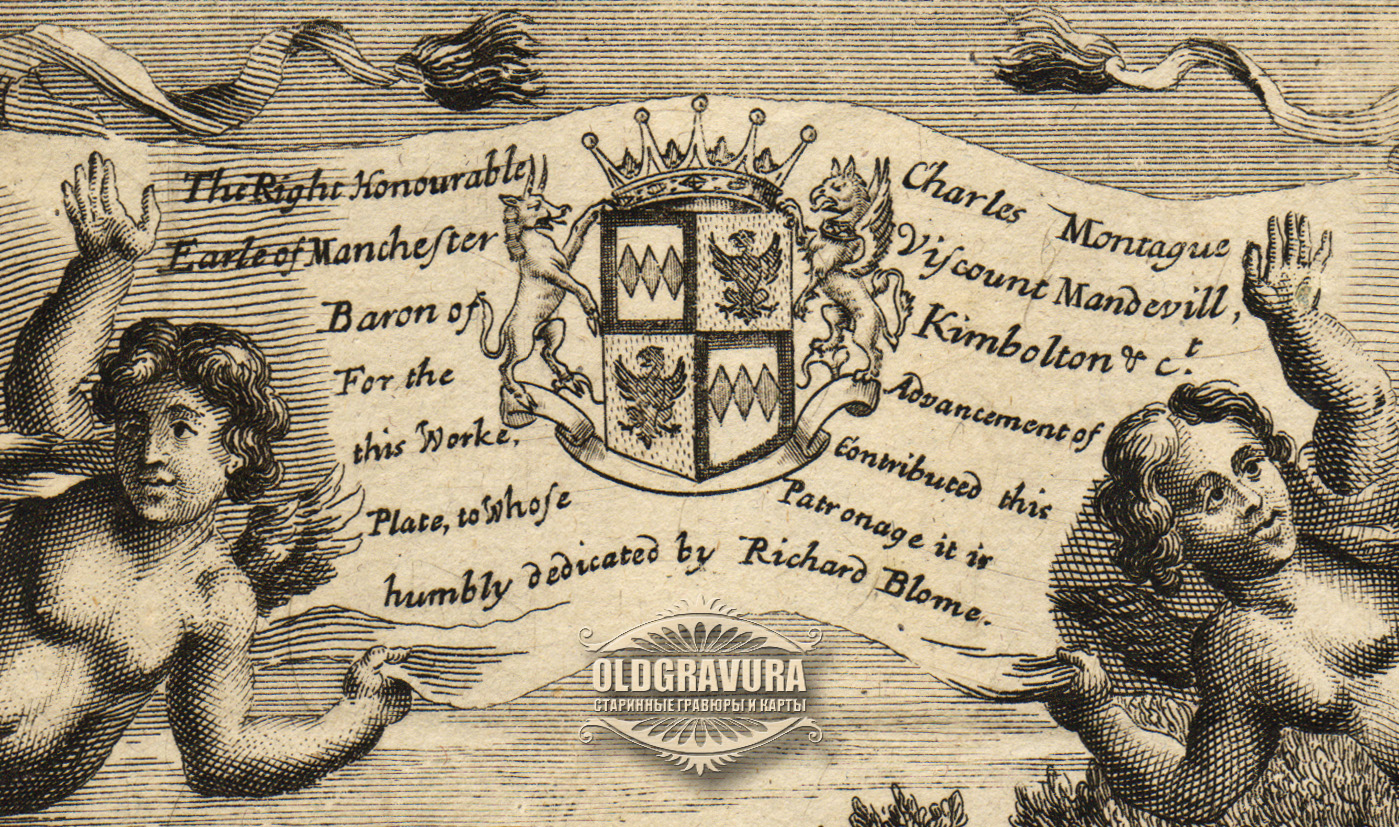 The Right Honourable Charles Montague
Earle of Mancheſter Viſcount Mandevill,
Baron of Kimbolton & ct.
For the Advancement of
this Worke, Contributed this
Plate, to Whoſe Patronage it is
humbly dedicated by Richard Blome.
OLDGRAVURA
СТАРИННЫЕ ГРАВЮРЫ И КАРТЫ